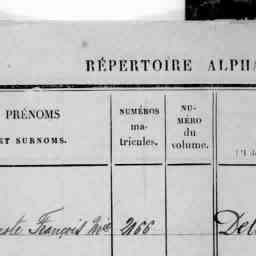 RÉPERTOIRE ALPHA
PRÉNOMS
ET SURNOMS.
NUMÉROS
ma-
tricules.
NU-
MÉRO
du
volume.
François 2166 Del